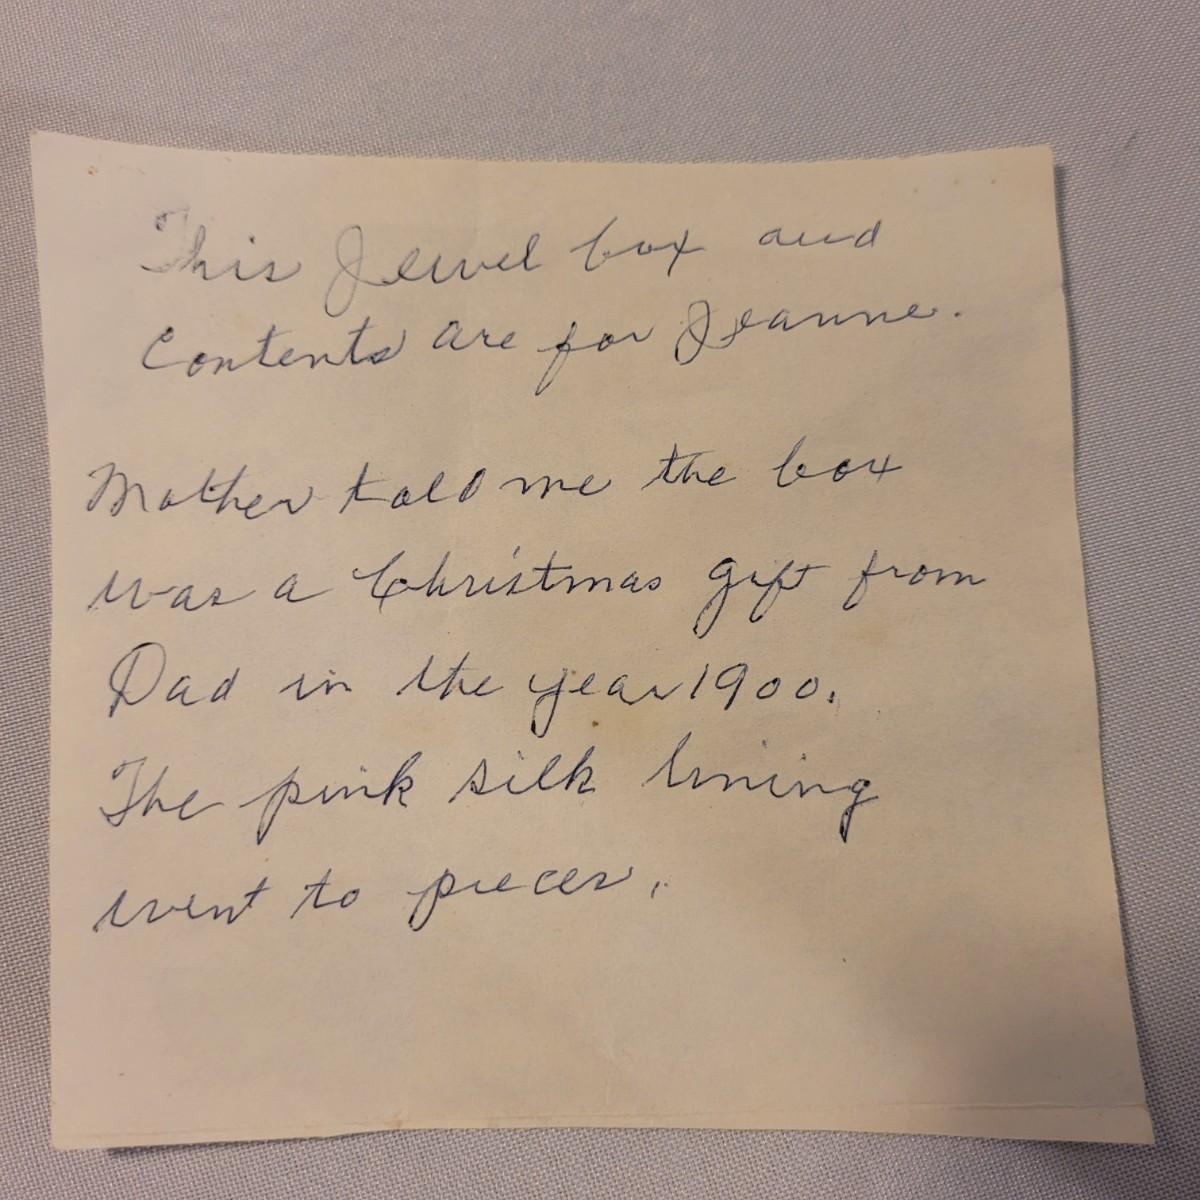 This Jewel box and
Contents are for Jeanne.
Mother told me the box
was a Christmas gift from
Dad in the year 1900.
The pink silk lining
went to pieces.